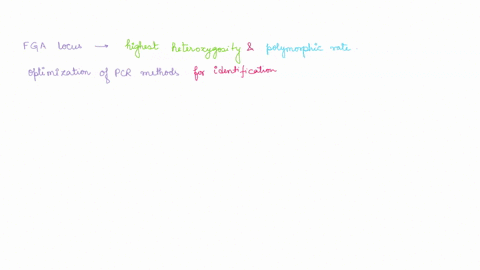 FGA locus → highest heterozygosity & polymorphic rate.
optimization of PCR methods for identification